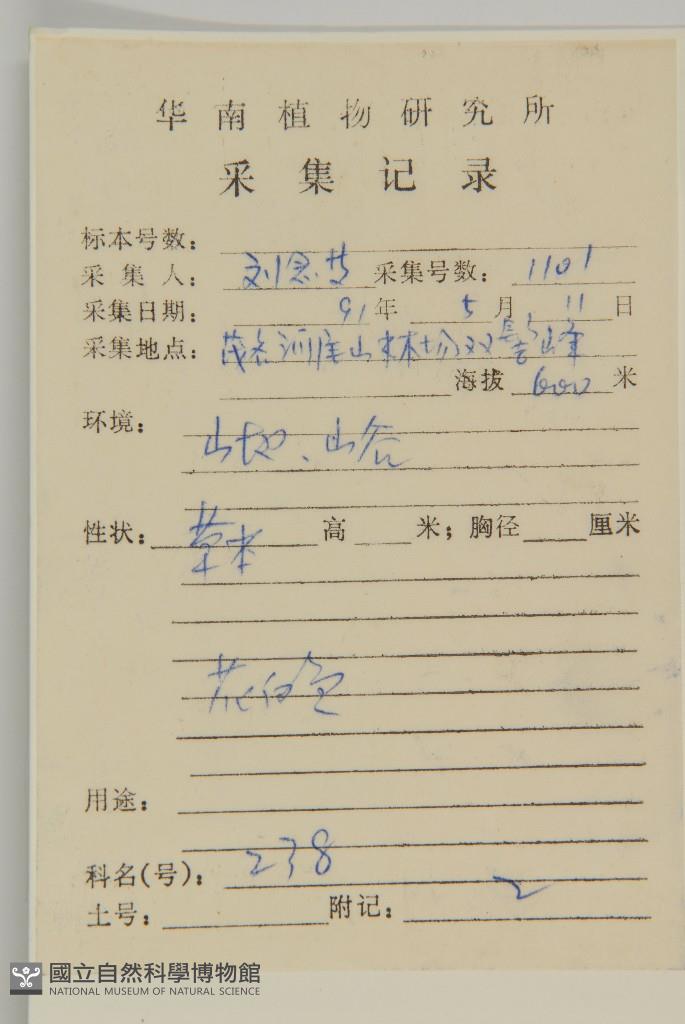 华南植物研究所
采集记录
标本号数：
采集人： 刘念 采集号数： 1101
采集日期： 91年 5月 11日
采集地点： 茂名河尾山林场双髻峰
海拔 600 米
环境：
山地、山谷
性状： 草本 高 米；胸径 厘米
花白色
用途：
科名(号)： 238
2
土号： 附记：
國立自然科學博物館
NATIONAL MUSEUM OF NATURAL SCIENCE